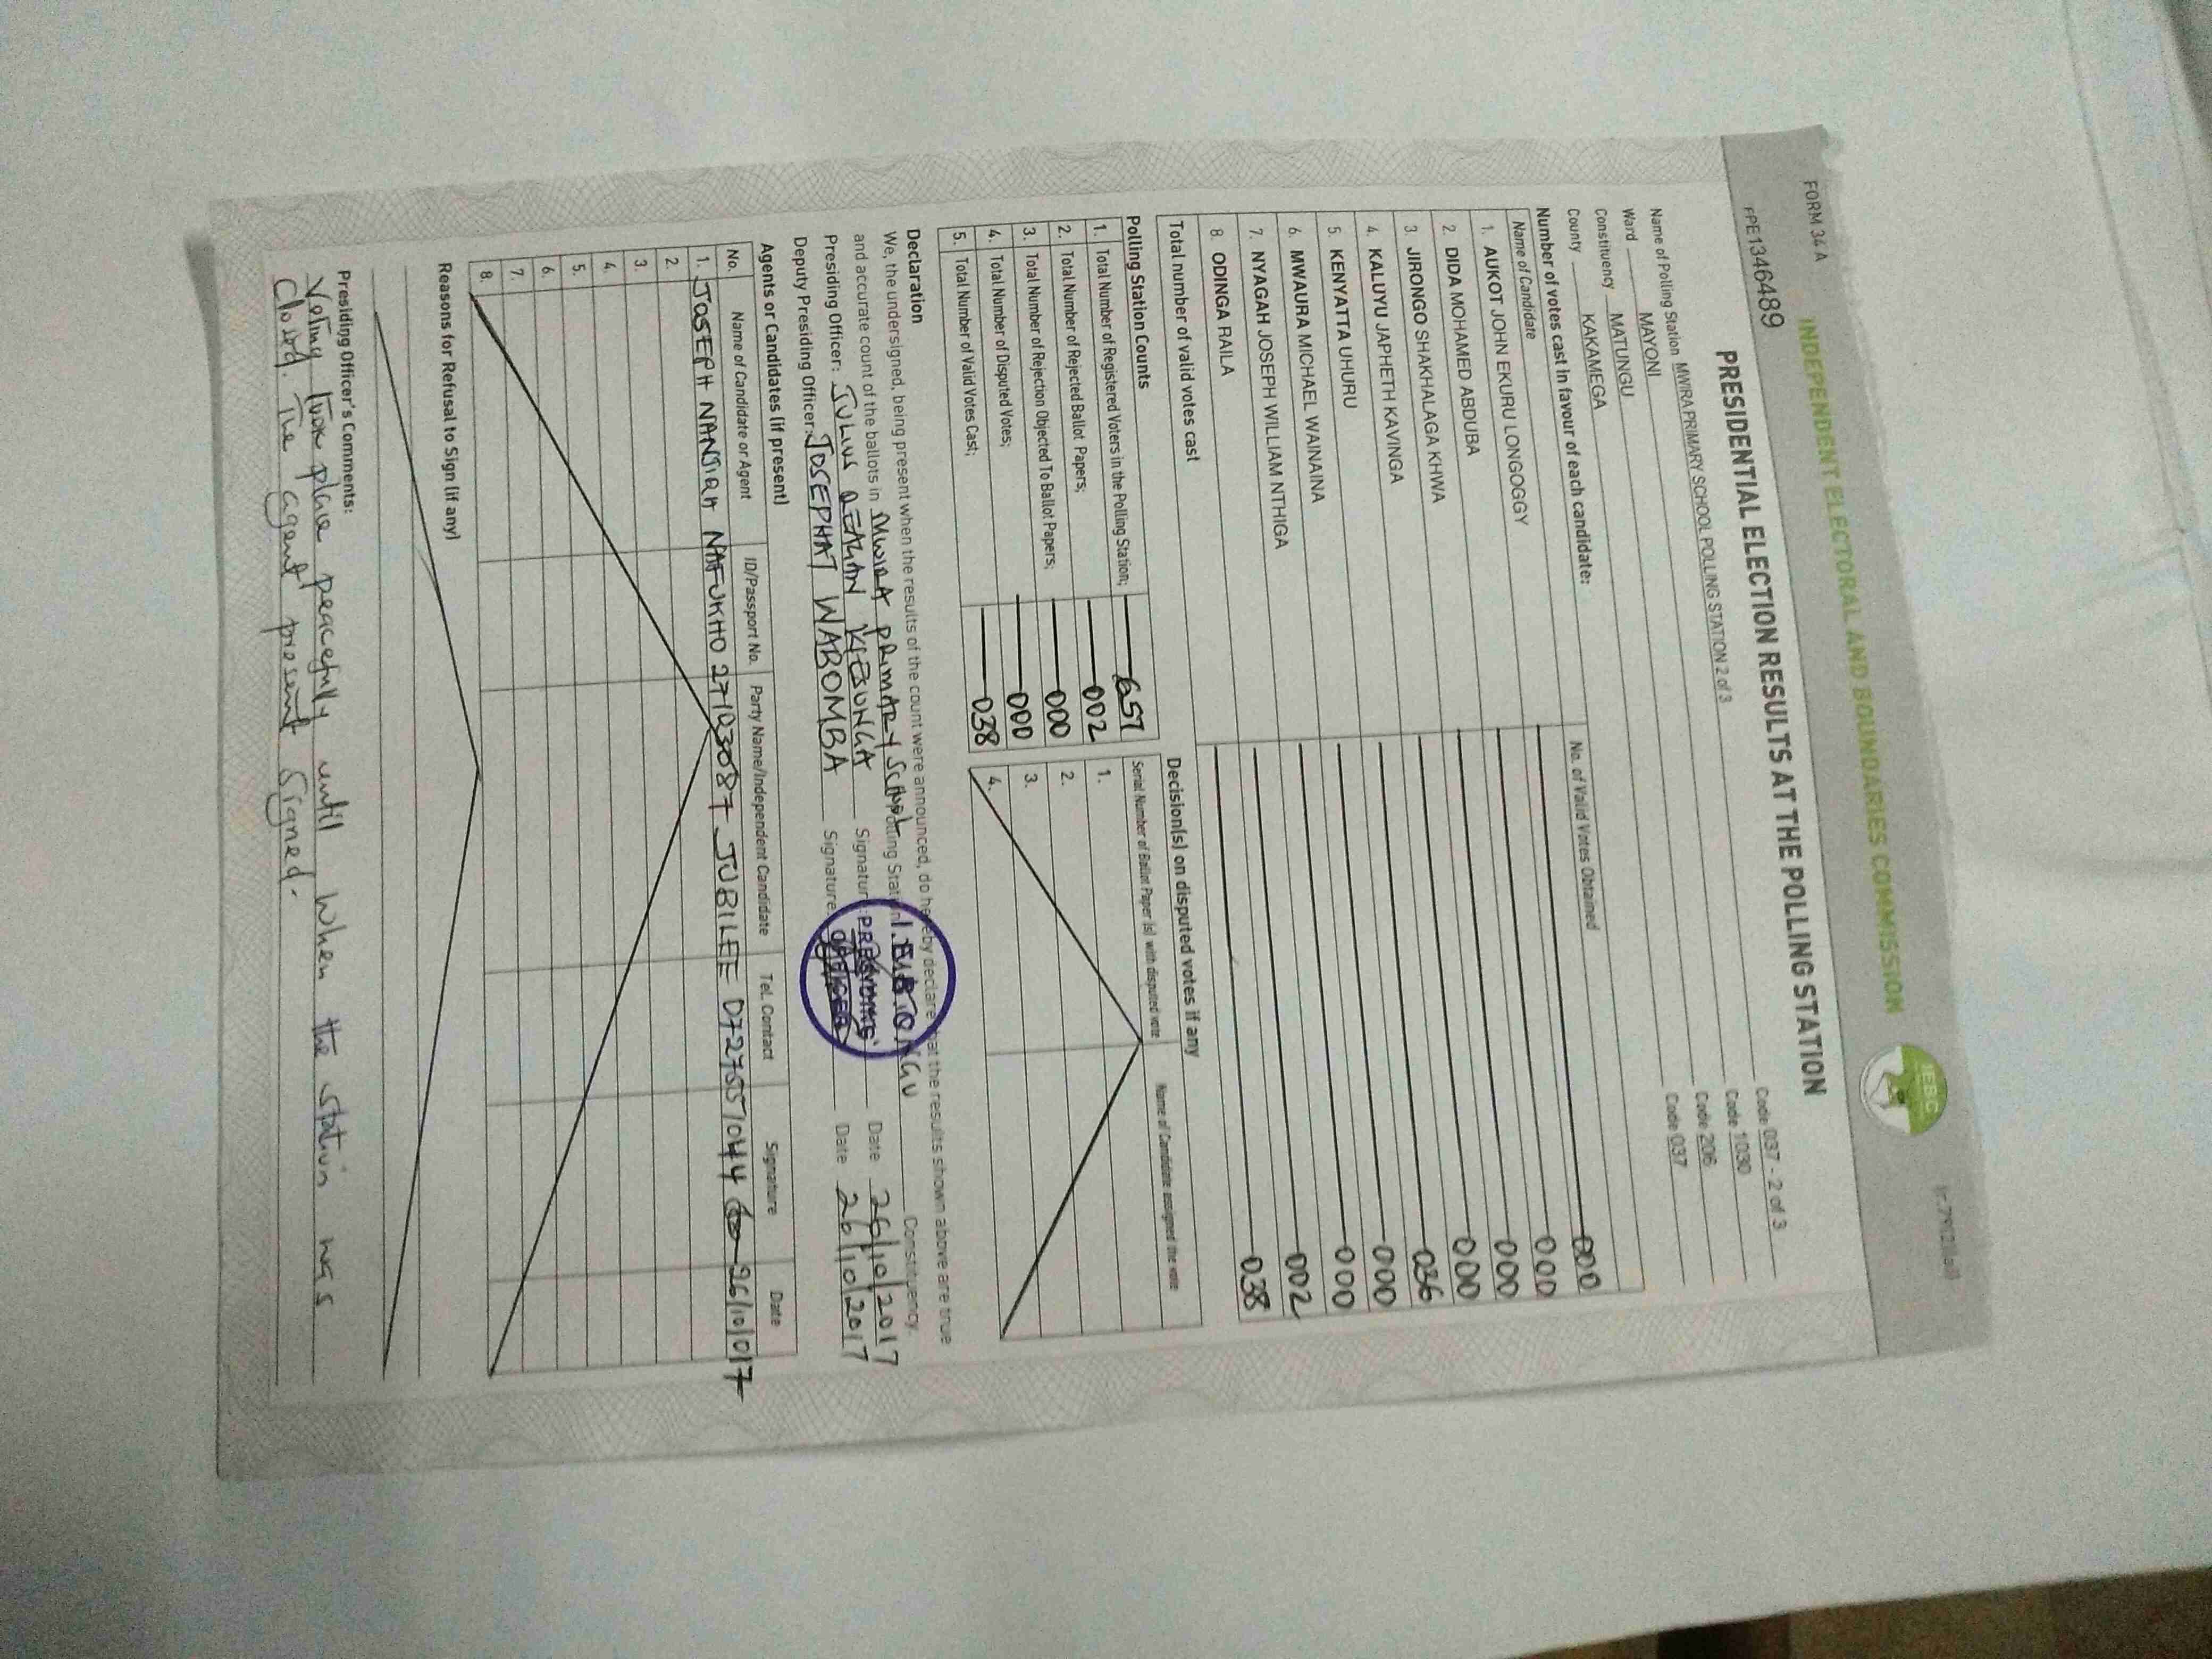 FORM 34A
INDEPENDENT ELECTORAL AND BOUNDARIES COMMISSION
IEBC
FPE1346489
PRESIDENTIAL ELECTION RESULTS AT THE POLLING STATION
Name of Polling Station MWIRA PRIMARY SCHOOL POLLING STATION 2 of 3 Code 037 - 2 of 3
Ward MAYONI Code 1030
Constituency MATUNGU Code 206
County KAKAMEGA Code 037
Number of votes cast in favour of each candidate:
Name of Candidate No. of Valid Votes Obtained
1. AUKOT JOHN EKURU LONGOGGY 000
2. DIDA MOHAMED ABDUBA 000
3. JIRONGO SHAKHALAGA KHWA 000
4. KALUYU JAPHETH KAVINGA 000
5. KENYATTA UHURU 036
6. MWAURA MICHAEL WAINAINA 000
7. NYAGAH JOSEPH WILLIAM NTHIGA 000
8. ODINGA RAILA 002
Total number of valid votes cast 038
Polling Station Counts
1. Total Number of Registered Voters in the Polling Station; 657
2. Total Number of Rejected Ballot Papers; 002
3. Total Number of Rejection Objected To Ballot Papers; 000
4. Total Number of Disputed Votes; 000
5. Total Number of Valid Votes Cast; 038
Decision(s) on disputed votes if any
Serial Number of Ballot Paper (s) with disputed vote Name of Candidate assigned the vote
1.
2.
3.
4.
Declaration
We, the undersigned, being present when the results of the count were announced, do hereby declare that the results shown above are true
and accurate count of the ballots in MWIRA PRIMARY SCHOOL Polling Station Constituency
Presiding Officer: JULIUS Signature: Date 26/10/2017
Deputy Presiding Officer: JOSEPHAT WABOMBA Signature Date 26/10/2017
PRESIDING
OFFICER
Agents or Candidates (if present)
No. Name of Candidate or Agent ID/Passport No. Party Name/Independent Candidate Tel. Contact Signature Date
1. JOSEPH NANJIAH NAFUKHO 27103087 JUBILEE 0727557044 26/10/017
2.
3.
4.
5.
6.
7.
8.
Reasons for Refusal to Sign (if any)
Presiding Officer's Comments:
Voting took place peacefully until when the station was
Closed. The agent present signed.